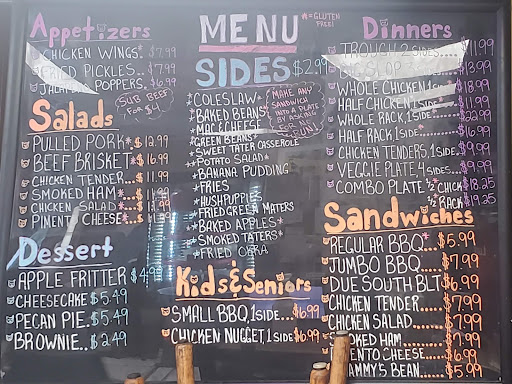 Appetizers
CHICKEN WINGS* $7.99
FRIED PICKLES.. $7.99
POPPERS. $6.99
SUB BEEF
FOR $1.
Salads
PULLED PORK*. $12.99
BEEF BRISKET* $16.99
CHICKEN TENDER... $11.99
SMOKED HAM*... $11.99
CHICKEN SALAD*... $11.99
PIMENTO CHEESE*... $11.99
Dessert
APPLE FRITTER $4.99
CHEESECAKE $5.49
PECAN PIE. $5.49
BROWNIE.. $2.49
MENU
*=GLUTEN
FREE!
SIDES $2.99
*COLESLAW*
*BAKED BEANS*
*MAC & CHEESE
*GREEN BEANS*
*SWEET TATER CASSEROLE
*POTATO SALAD*
*BANANA PUDDING
*FRIES
*HUSHPUPPIES
*FRIED GREEN MATERS
*BAKED APPLES*
*SMOKED TATERS*
*FRIED OKRA
MAKE ANY
SANDWICH
INTO A PLATE
BY ASKING
FOR NO
BUN!
Kids & Seniors
SMALL BBQ, 1 SIDE... $6.99
CHICKEN NUGGET, 1 SIDE $6.99
Dinners
TROUGH 2 SIDES..... $11.99
$13.99
WHOLE CHICKEN $18.99
HALF CHICKEN 1 SIDE $11.99
WHOLE RACK, 1 SIDE $22.99
HALF RACK* 1 SIDE $16.99
CHICKEN TENDERS, 1 SIDE. $9.99
VEGGIE PLATE, 4 SIDES... $9.99
COMBO PLATE ½ CHICK $18.25
½ RACK $19.25
Sandwiches
REGULAR BBQ*... $5.99
JUMBO BBQ..... $7.99
DUE SOUTH BLT $6.99
CHICKEN TENDER.... $7.99
CHICKEN SALAD.... $7.99
SMOKED HAM.... $7.99
CHEESE.... $6.99
5 BEAN..... $5.99